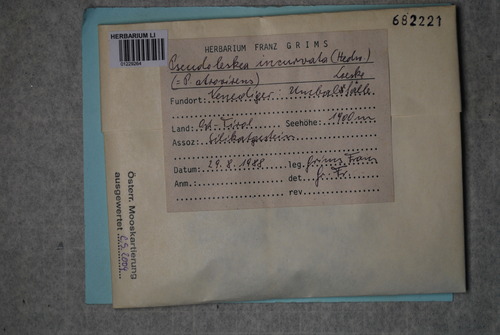 682221
HERBARIUM LI
HERBARIUM FRANZ GRIMS
Pseudoleskea incurvata (Hedw.)
(= P. atrovirens) Loeske
Fundort: Venediger: Umbalfälle
Land: Ost-Tirol Seehöhe: 1900m
Assoz: Silikatgestein
Datum: 29.8.1988 leg. Grims Franz
Anm.: det. G. Fr.
rev.
Österr. Mooskartierung
ausgewertet